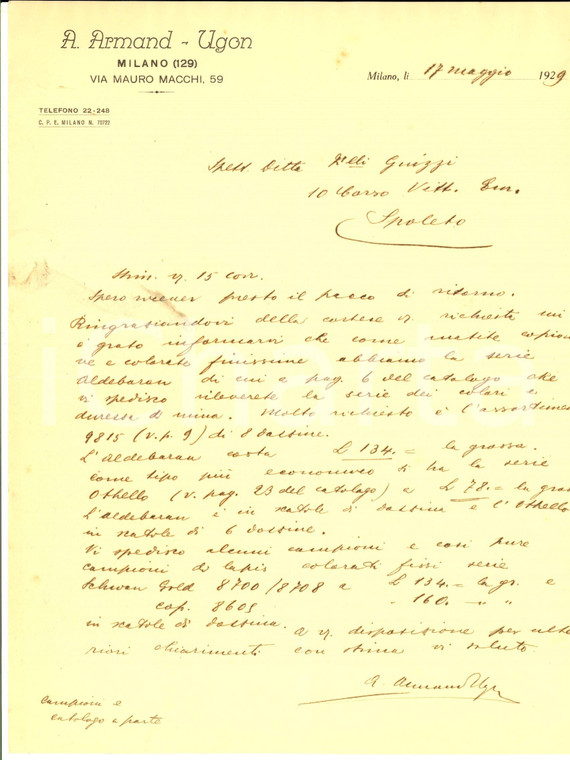 A. Armand - Ugon
MILANO (129)
VIA MAURO MACCHI, 59
TELEFONO 22-248
C. P. E. MILANO N.
Milano, li 17 maggio 1929
Spett. Ditta F.lli Guizzi
10 Corso Vitt. Em.
Spoleto
Stim. v. 15 corr.
Spero ricever presto il pacco di ritorno.
Ringraziandovi della cortese v. richiesta mi
è grato informarvi che come matite copia
ve e colorate finissime abbiamo la serie
Aldebaran di cui a pag. 6 del catalogo che
vi spedisco rileverete la serie dei colori e
durezza di mina. Molto richiesto è l'assortimen
9815 (v. p. 9) di 8 dozzine.
L'Aldebaran costa £ 134.= la grossa.
come tipo più economico si ha la serie
Othello (v. pag. 23 del catalogo) a £ 78.= la gro
L'aldebaran è in scatole di dozzina e l'Othello
in scatole di 6 dozzine.
Vi spedisco alcuni campioni e così pure
campioni di lapis colorati fissi serie
Schwan Gold 8700/8708 a £ 134.= la gr. e
cop. 8605 " 160.- " "
in scatole di dozzina.
a v. disposizione per ulte
riori chiarimenti con stima vi saluto
A. Armand Ugon
campioni e
catalogo a parte